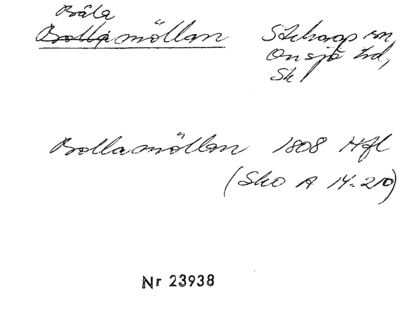 Båla
Bolla möllan Stehags sn,
Onsjö hd,
Sk
Bollamöllan 1808 Hfl
(Sko A 14-210)
Nr 23938